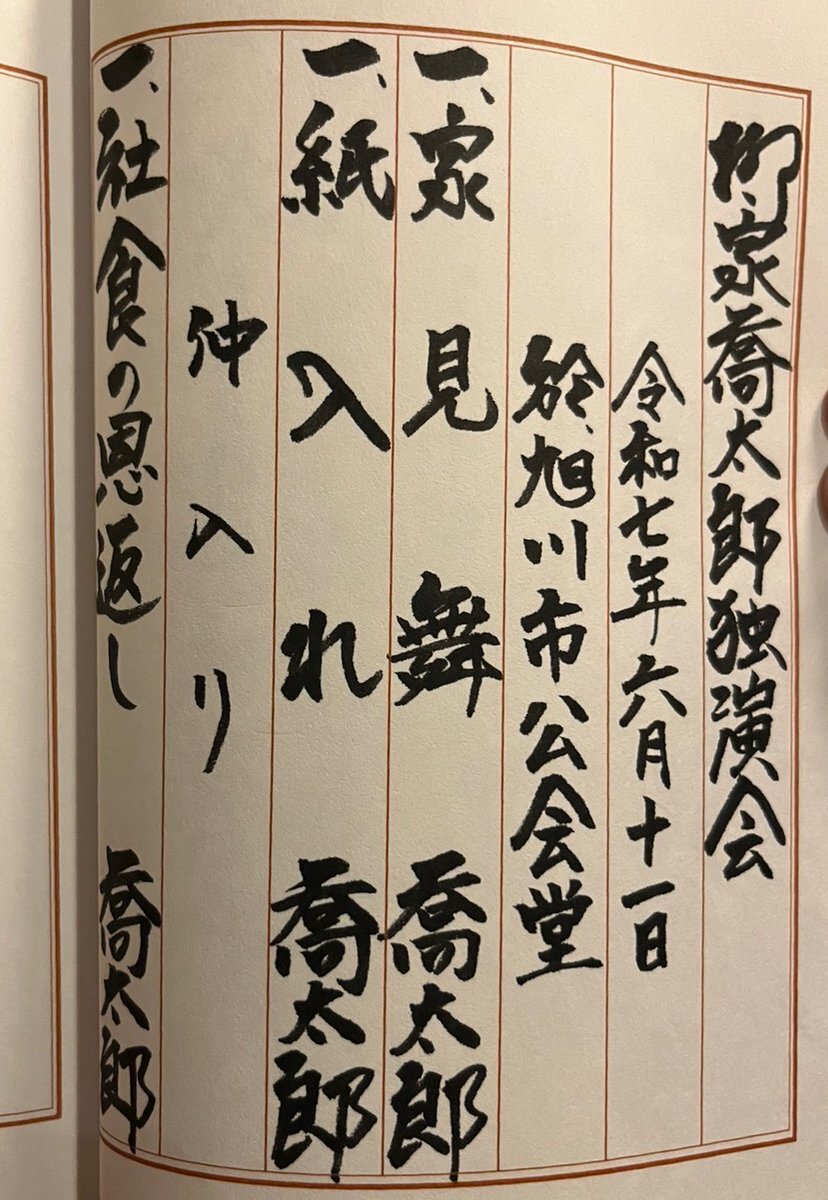 柳家喬太郎独演会
令和七年六月十一日
於、旭川市公会堂
一、家見舞 喬太郎
一、紙入れ 喬太郎
仲入り
一、社食の恩返し 喬太郎